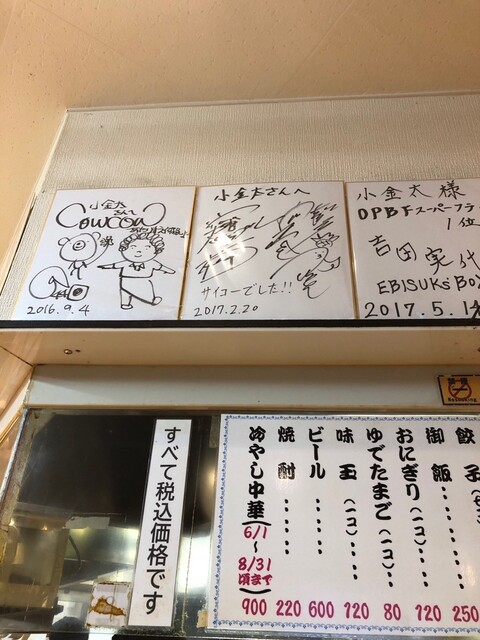 小金太
さんへ
Cowcow
2016.9.4
小金太さんへ
サイコーでした!!
2017.2.20
小金太様
OPBFスーパーフラ
1位
吉田実代
EBISUK's BO
2017.5.1
No Smoking
餃子
250
御飯
120
おにぎり(一コ)
120
ゆでたまご(一コ)
80
味玉(一コ)
120
ビール
600
焼酎
220
冷やし中華
6/1
〜
8/31
頃まで
900
すべて税込価格です